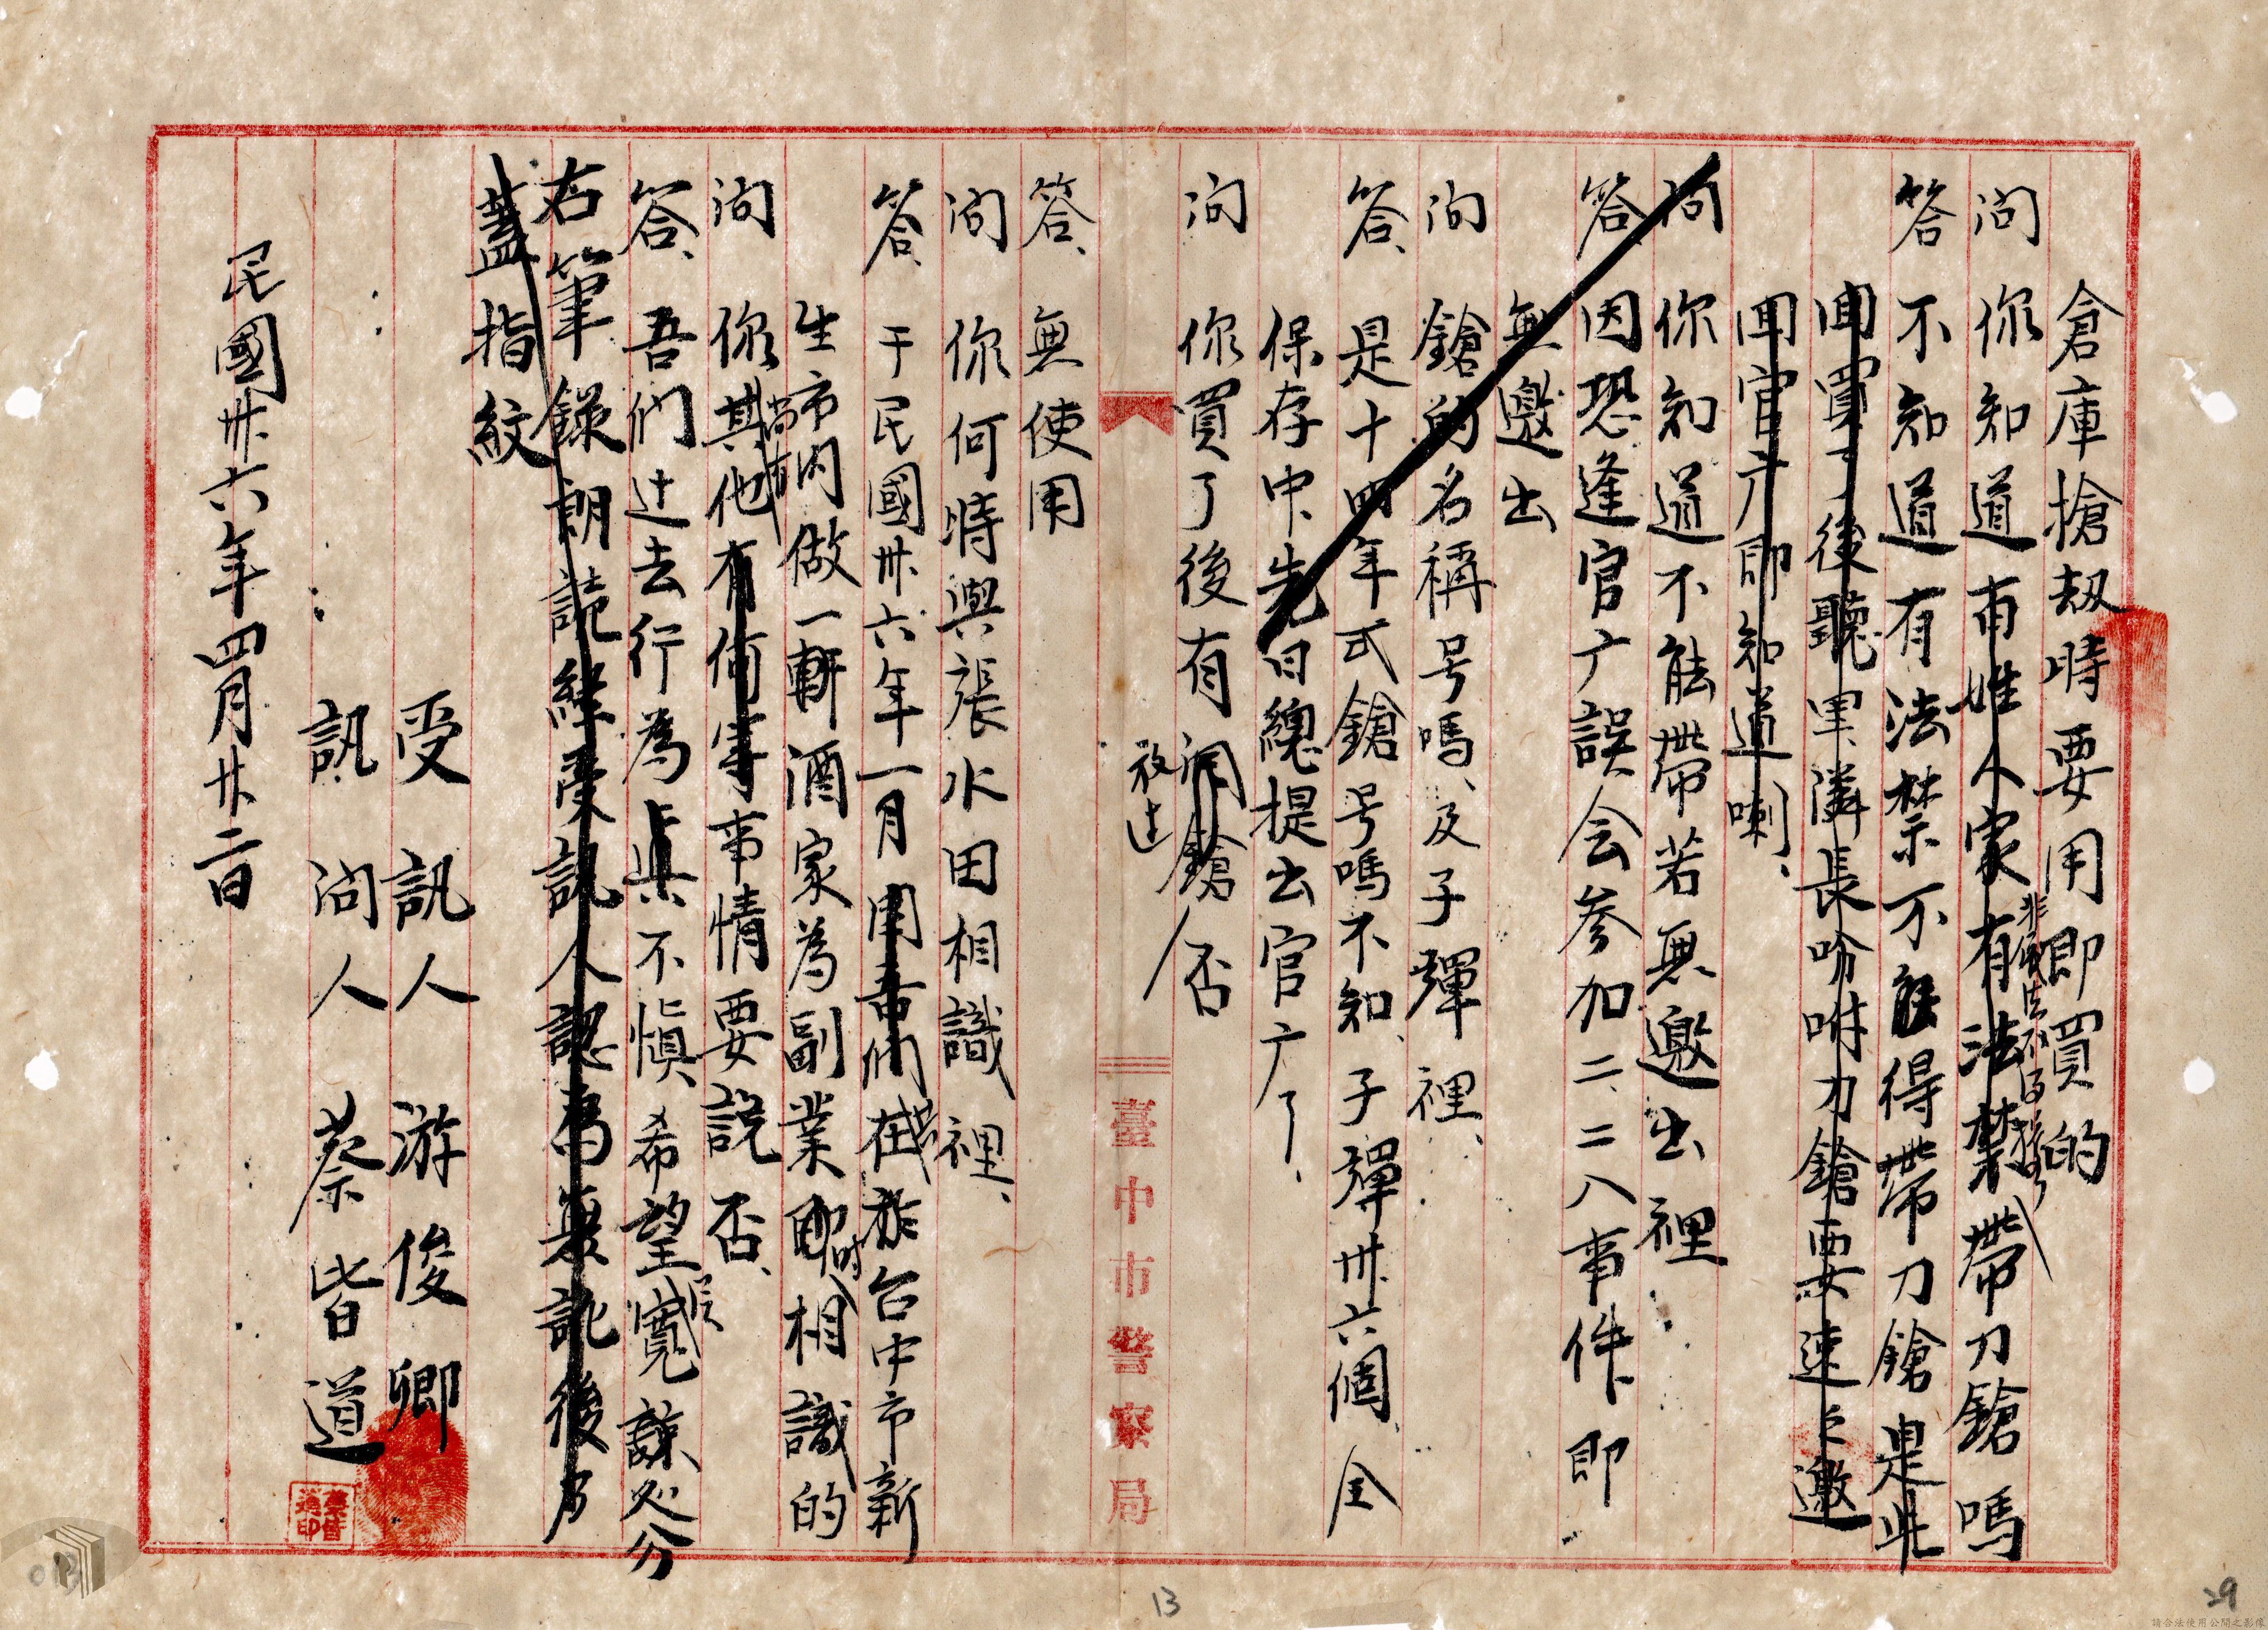 倉庫搶刼時要用即買的
問 你知道甫姓人家有法禁帶刀鎗嗎
非 法不得
答 不知道有法禁不能得帶刀鎗是此
聞買了後聽里、隣長吩咐刀鎗要速上邀
聞官廳即知道喇、
問 你知道不能帶若無邀出裡
答、因恐逢官广誤会参加二、二八事件即
無邀出
問 鎗的名稱号嗎、及子彈裡、
答、是十四年式鎗号嗎不知、子彈卅六個、全
保存中、先日總提出官广了、
問 你買了後有 鎗否
放过
臺中市警察局
答、無使用
問 你何時與張水田相識裡、
答、于民國卅六年一月 吾們在於台中市新
生市內做一軒酒家為副業即時相識的
問 你其他有何等事情要說否、
尚有
答、吾們过去行為真不慎、希望寬諒処分
從
右筆錄朗讀經受訊人認為無訛後乃
蓋指紋
受訊人 游俊卿
訊問人 蔡皆道
民國卅六年四月廿二日
蔡皆道印
013
13
29
請合法使用公開之影像